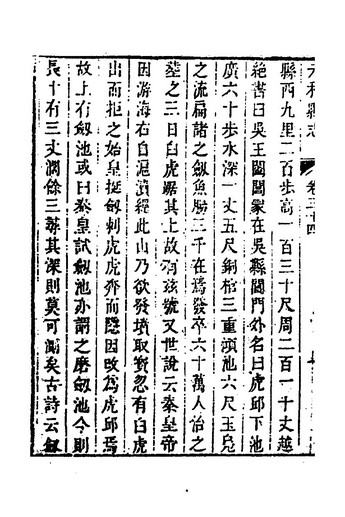 元和縣志 卷三十四
縣西九里二百步高一百三十尺周二百一十丈越
絶書曰吳王闔閭冢在吳縣閶門外名曰虎邱下池
廣六十步水深一丈五尺銅棺三重澒池六尺玉鳧
之流扁諸之劔魚腸三千在焉發卒六十萬人治之
葬之三日白虎踞其上故有茲號又世說云秦皇帝
因游海右自滬瀆經此山乃欲發墳取寳忽有白虎
出而拒之始皇挺劔刺虎虎奔而隱因改為虎邱焉
故上有劔池或曰秦皇試劔池亦謂之磨劔池今則
長十有三丈濶餘三尋其深則莫可測矣古詩云劔